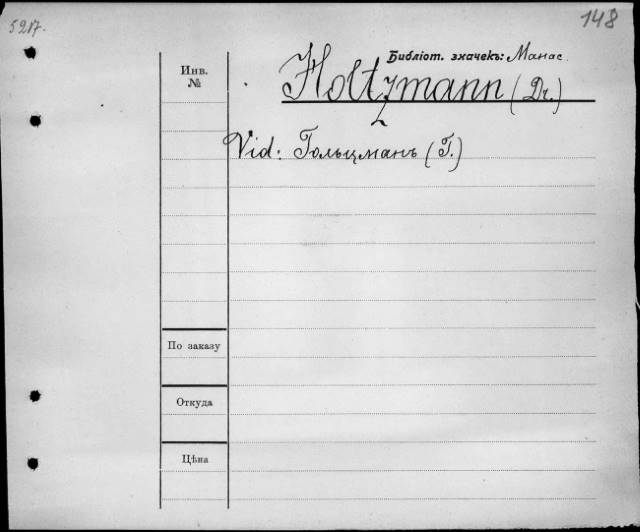 5217.
148
Библіот. значекъ: Манас.
Инв.
№
Holtzmann (Dr.)
Vid: Гольцманъ (Г.)
По заказу
Откуда
Цѣна